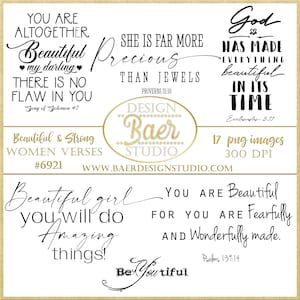 YOU ARE
ALTOGETHER
Beautiful
my darling
THERE IS NO
FLAW IN YOU
Song of Solomon 4:7
SHE IS FAR MORE
Precious
THAN JEWELS
PROVERBS 31:10
God
HAS MADE
EVERYTHING
beautiful
IN ITS
TIME
Ecclesiastes 3:11
Beautiful & Strong
WOMEN VERSES
#6921
DESIGN
Baer
STUDIO
17 png images
300 DPI
WWW.BAERDESIGNSTUDIO.COM
Beautiful girl
you will do
Amazing
things!
YOU ARE Beautiful
FOR YOU ARE Fearfully
AND Wonderfully made.
Psalms 139:14
BeYoutiful